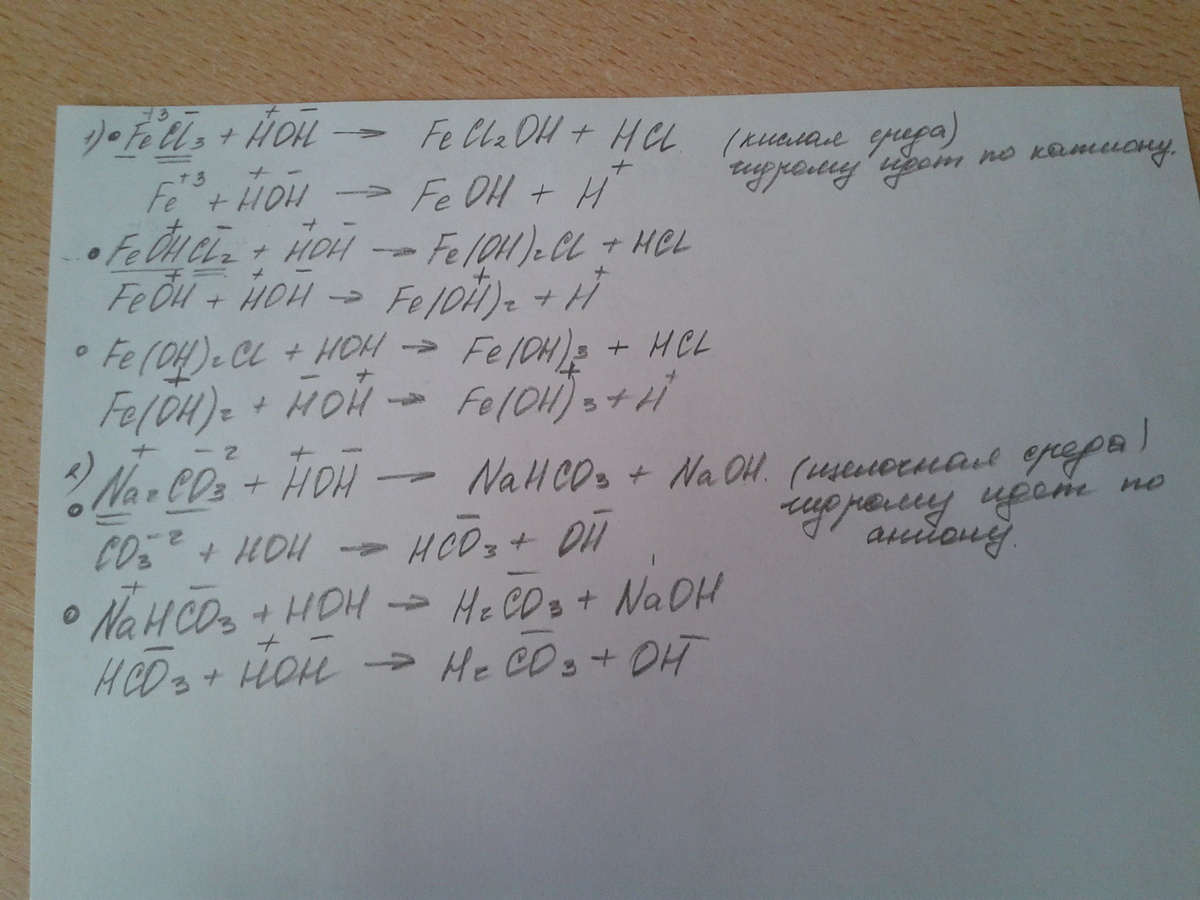 1) • Fe⁺³Cl⁻₃ + H⁺OH⁻ → FeCl₂OH + HCl (кислая среда) гидролиз идёт по катиону.
Fe⁺³ + H⁺OH⁻ → FeOH + H⁺
• FeOH⁺Cl⁻₂ + H⁺OH⁻ → Fe(OH)₂Cl + HCl
FeOH⁺ + H⁺OH⁻ → Fe(OH)₂⁺ + H⁺
• Fe(OH)₂Cl + HOH → Fe(OH)₃ + HCl
Fe(OH)₂⁺ + H⁻OH⁺ → Fe(OH)₃⁺ + H⁺
2) • Na₂⁺CO₃⁻² + H⁺OH⁻ → NaHCO₃ + NaOH. (щелочная среда) гидролиз идёт по аниону.
CO₃⁻² + HOH → HCO₃⁻ + OH⁻
• Na⁺HCO₃⁻ + HOH → H₂CO₃⁻ + NaOH
HCO₃⁻ + H⁺OH⁻ → H₂CO₃⁻ + OH⁻